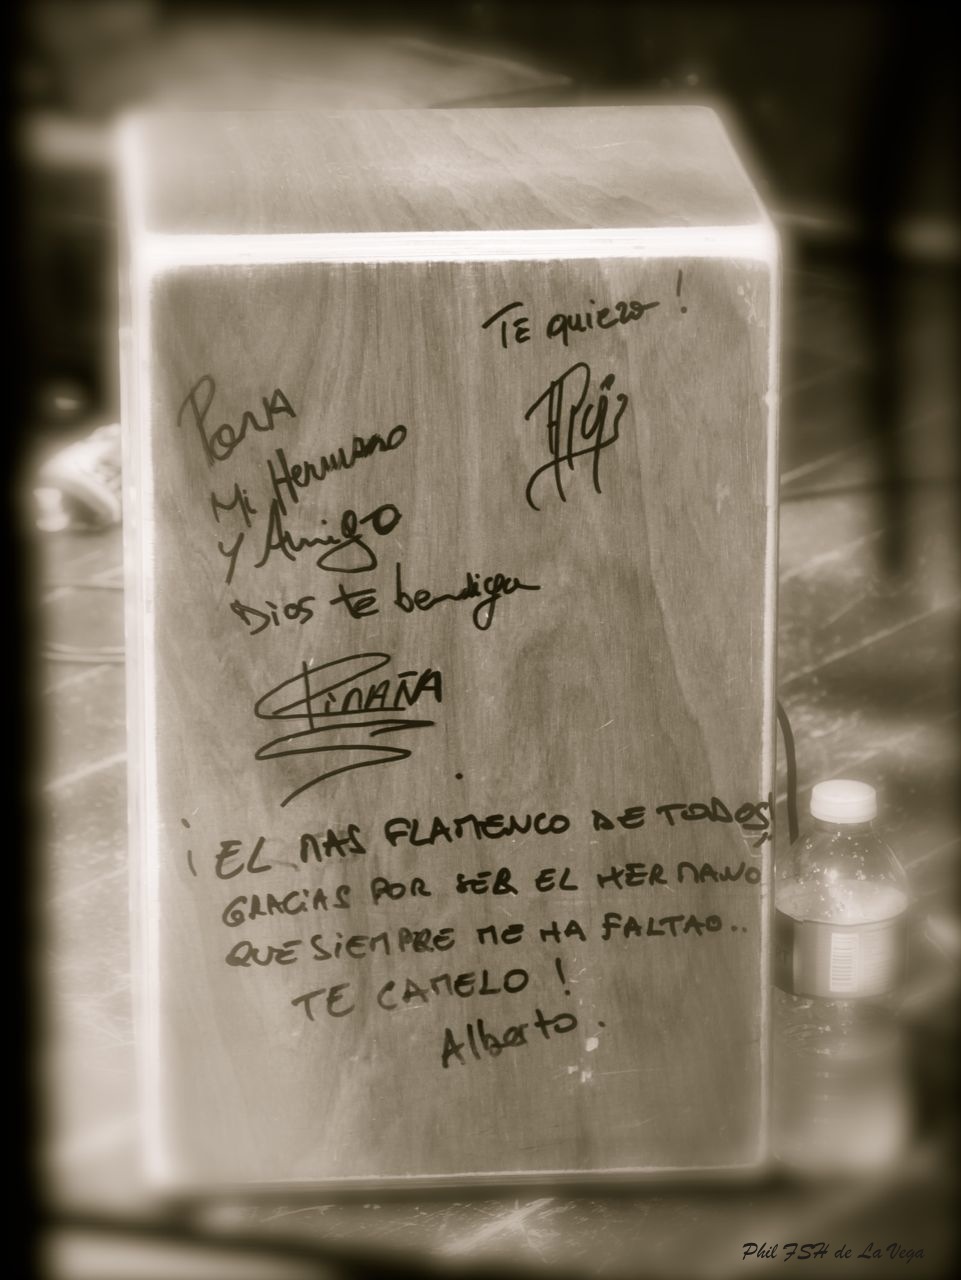 TE quiero !
Para
Mi Hermano
y Amigo
Dios te bendiga
PiñAÑA
¡EL MAS FLAMENCO DE TODOS!
GRACiAS POR SER EL HERMANO
QUE SiEMPRE ME HA FALTAO..
TE CAMELO !
Alberto.
Phil FSH de La Vega